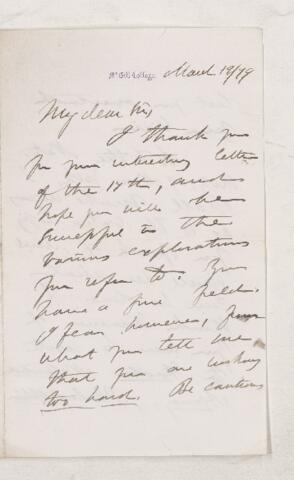 McGill College March 19/79
My dear Sir,
I thank you
for your interesting letter
of the 17th, and
hope you will be
successful in the
various explorations
you refer to. You
have a fine field.
I fear however, from
what you tell me
that you are working
too hard. Be cautious